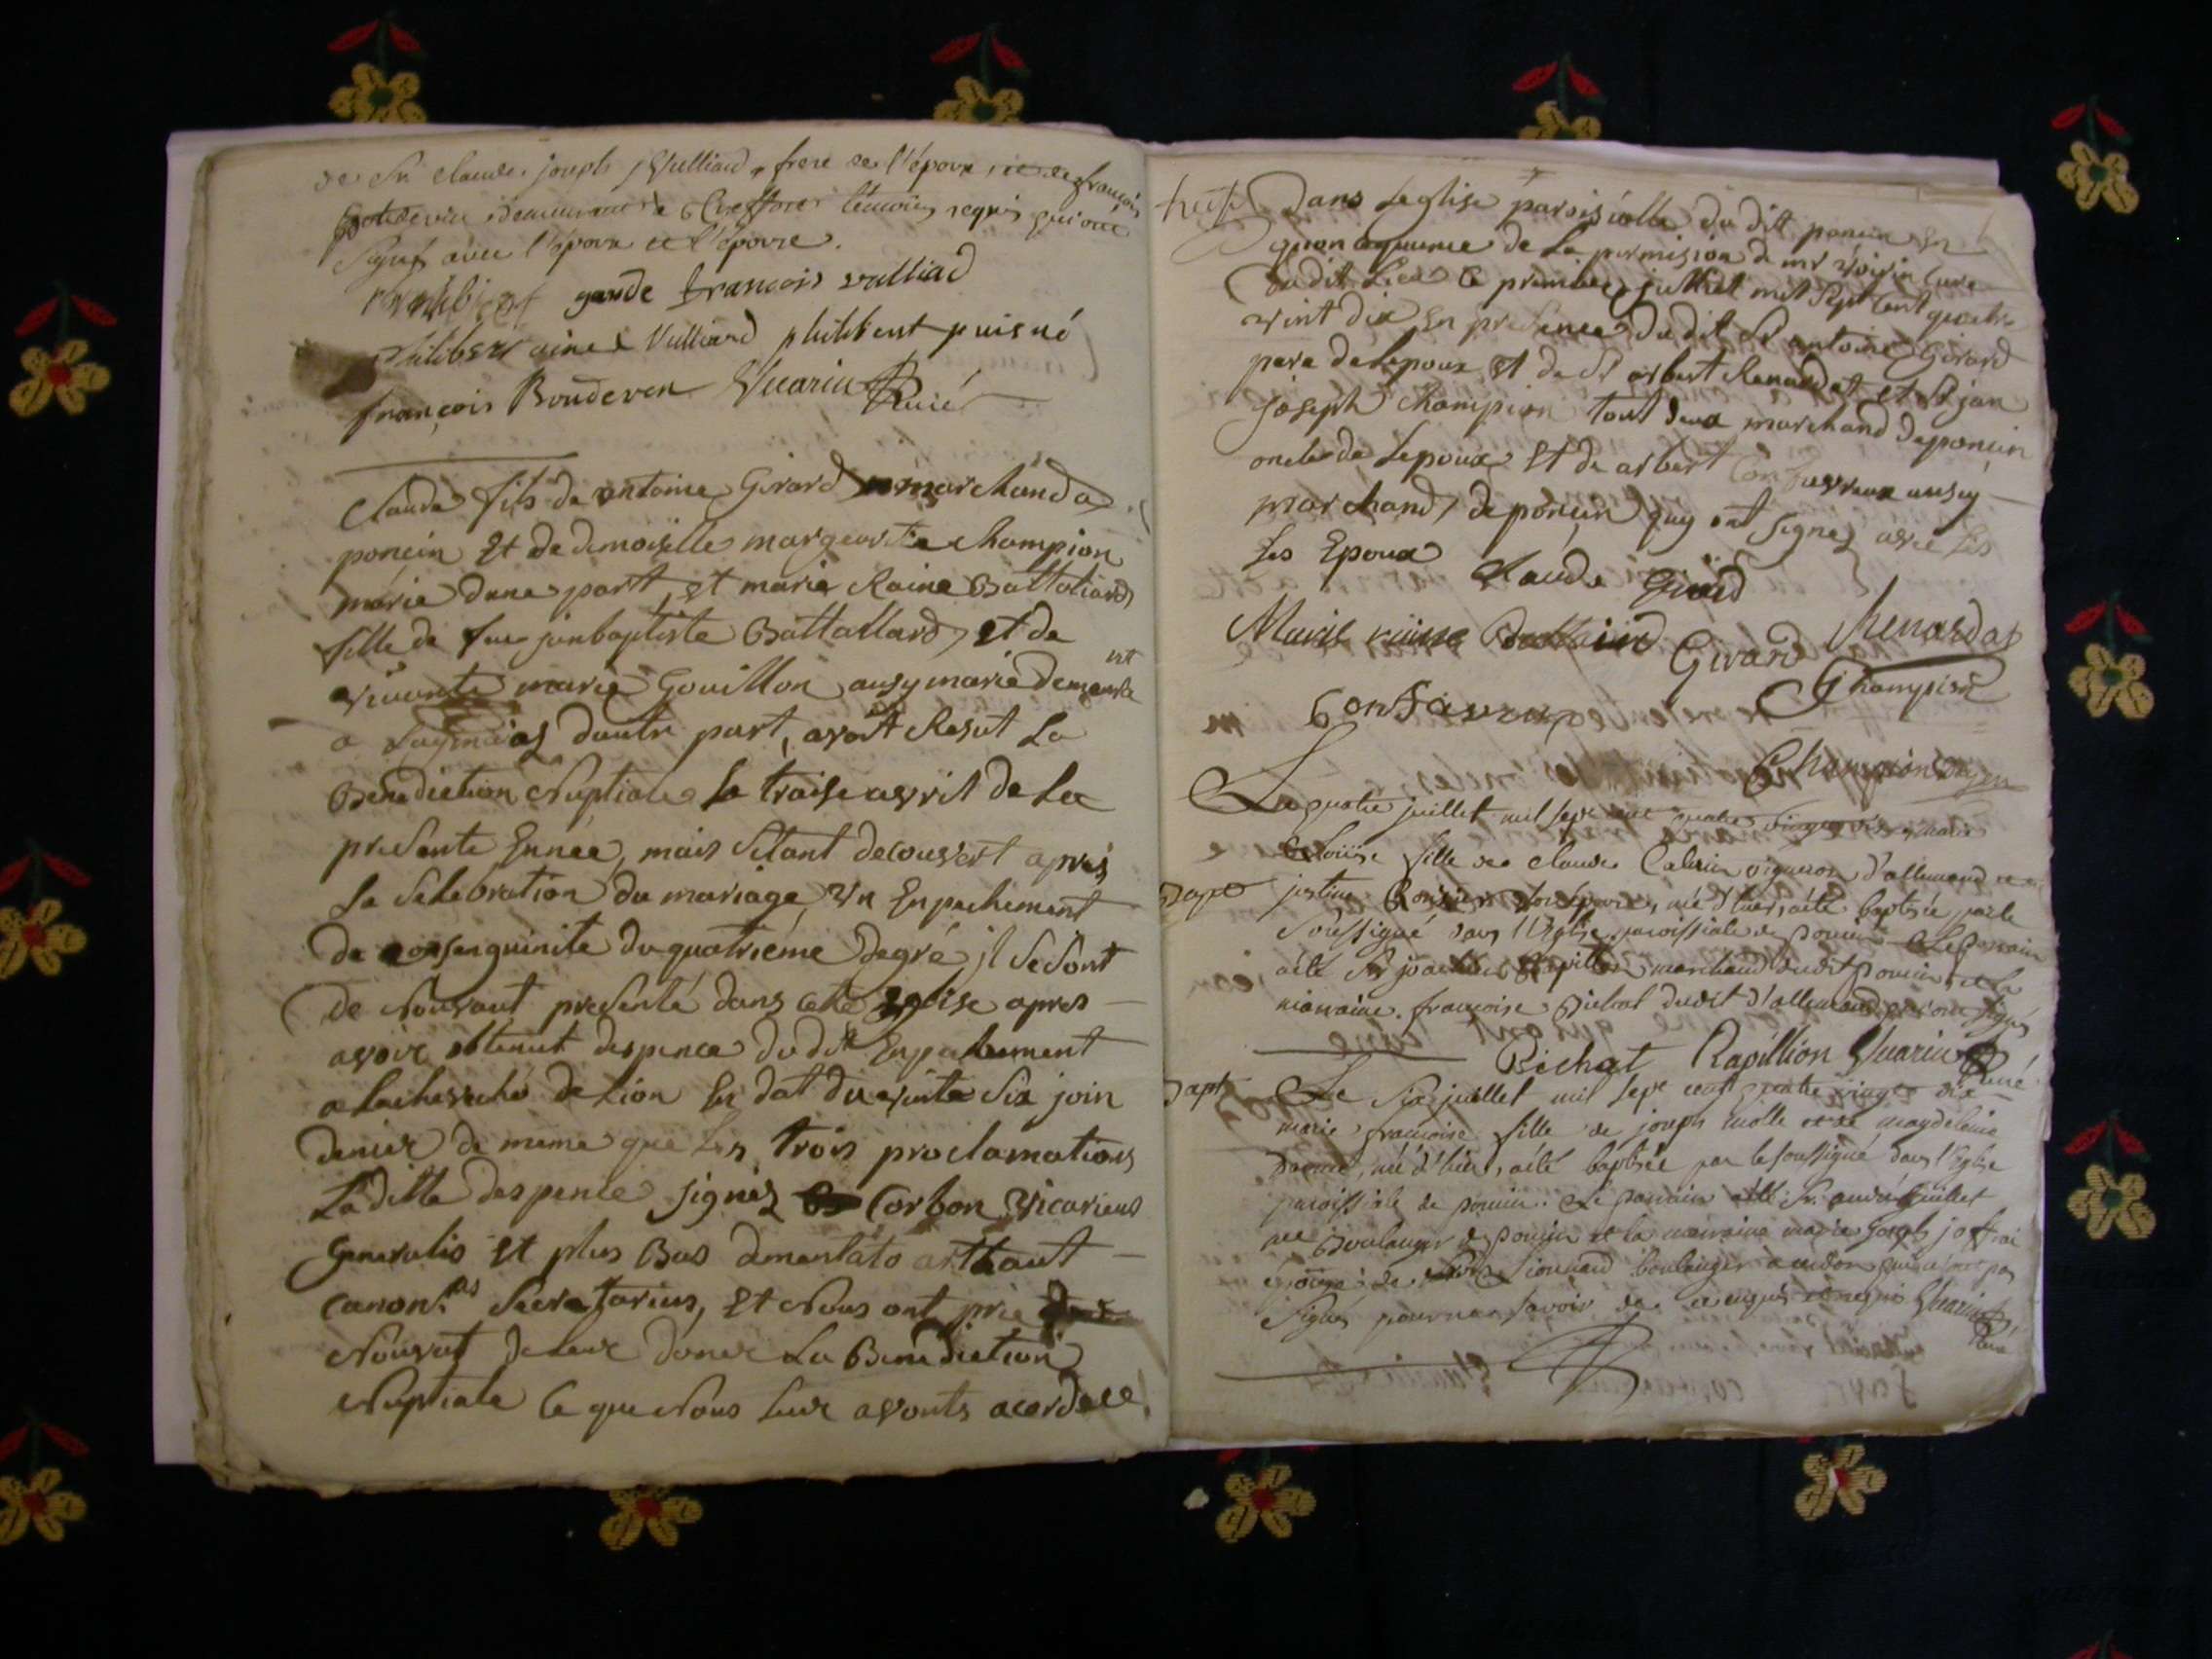 de Sr. Claude joseph Vulliard, frere de l'époux, et de françois
demeurant a temoins requis qui ont
signés avec l'époux et l'épouse.
gande francois vulliad
philibert aine Vulliard philibert puisné
françois Boudeven Vuarin Curé
Claude fils de antoine Girard marchand a
poncin Et de demoiselle margeurite Champion
marié dune part, et marie Raine Battaliard
fille de feu jenbaptiste Battallard, et de
vivante marie Gouillon ausy marié demeurant
a dautr part, avoit Resut La
Benediction Nuptiale Le traise avril de La
presente Ennée, mais Setant decouvert apres
La Selebration du mariage, Vn Enpechement
de consenguinite du quatriéme Degré jl Se Sont
de Nouvaut presenté dans cete Eglise apres
avoir obtenut despence du dit Enpechement
a Lachevéché de Lion En dat du vinte Six join
denier de meme que Les trois proclamations
La ditte despence signéz Corbon vicarieus
Generalis Et plus Bas demantato arthaut
canon.us Secretarius, Et Nous ont prie de
Nouvaut de Leur doner La Benediction
Nuptiale Ce que Nous Leur avonts acordé ce
Dans Leglise paroisiolle du dit poncin En
de La permision de mr voisin Cure
dudit Lieu Ce premier julliet mil Sept Cent quatre
vint dix En presence du dit Sr antoine Girard
pere de Lepoux Et de Sr arbert Renardat et Sr jan
joseph Champion tout deux marchand de poncin
oncle de Lepoux Et de arbert Confavreux ausy
marchand, de poncin quy ont signéz avec Les
Les Epoux Claude Girard
Marie raine Battaliard Girard Renardat
Confavreux Champion
Champion
Le quatre juillet mil sept cent quatre vingt dix, marie
Loüise fille de Claude vigneron d'allement et de
Bapt justine son epouse, née d'hier, aété baptisée par le
Soussigné dans l'Eglise paroissiale de poncin Le parrain
aété Sr joachim Rapillion marchand dudit poncin, et La
marraine françoise Bichat dudit d'allement qui ont signés
Bichat Rapillion Vuarin Curé
Bapt Le Six juillet mil sept cent quatre vingt dix
marie françoise fille de joseph et de magdeleine
née d'hier, aété baptisée par le soussigné dans l'Eglise
paroissiale de poncin. Le parrain aété Sr. andré juillet
Boulanger de poncin et la marraine marie joseph joffrai
epouse de Lionard boulanger qui n'ont pas
signés pour ne savoir de ce enquis et requis Vuarin
Curé